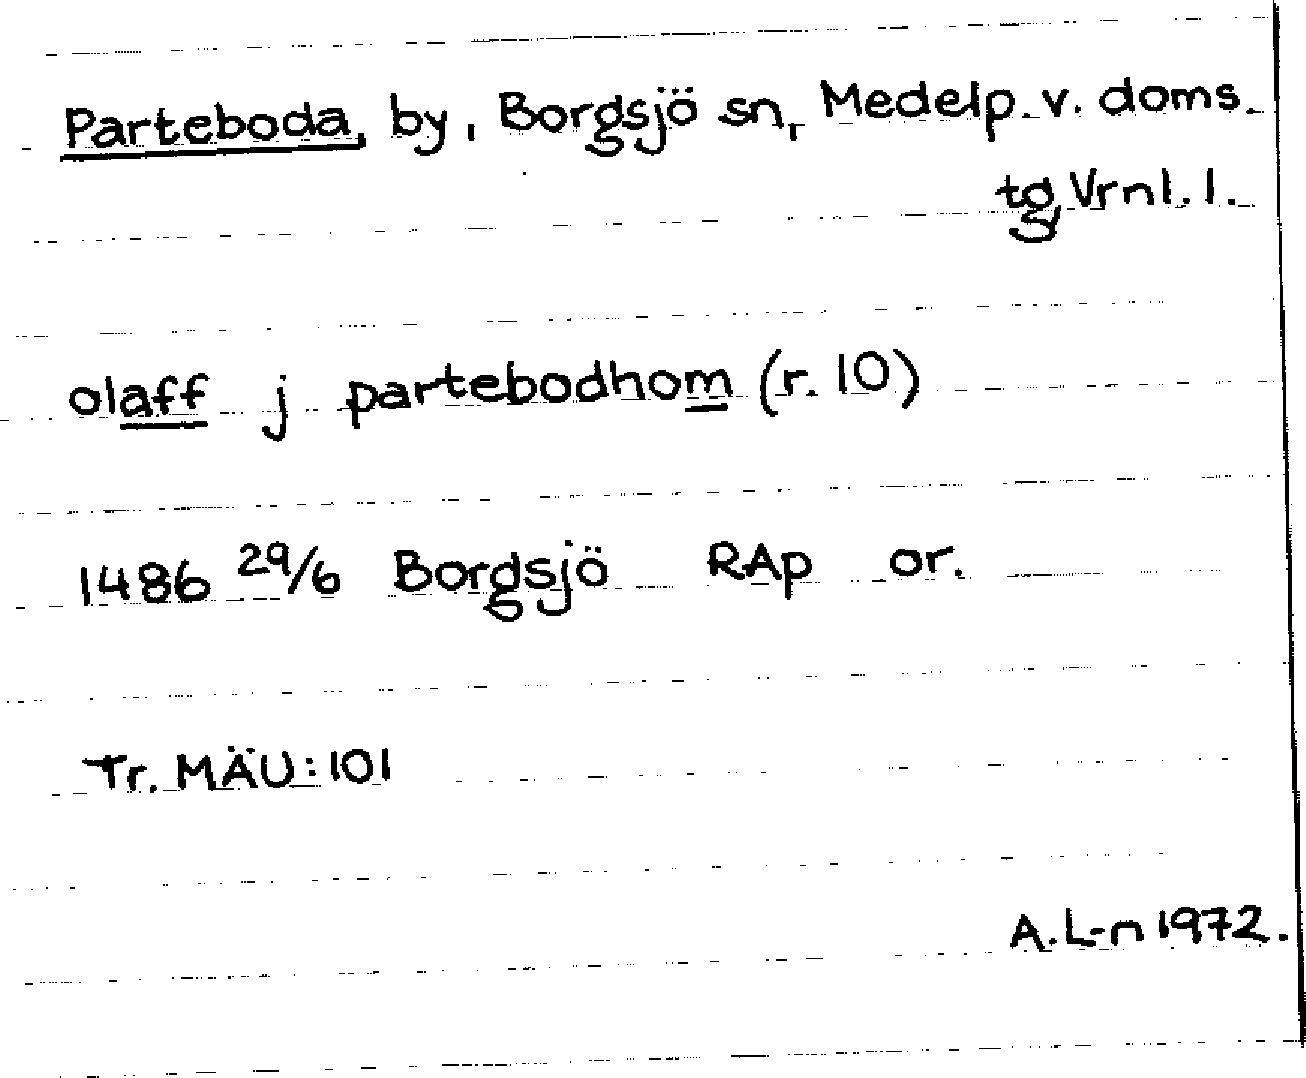 Parteboda, by, Borgsjö sn, Medelp. v. doms.
tg, Vrnl. l.
olaff j partebodhom (r. 10)
1486 29/6 Borgsjö RAp or.
Tr. MÄU: 101
A. L-n 1972.